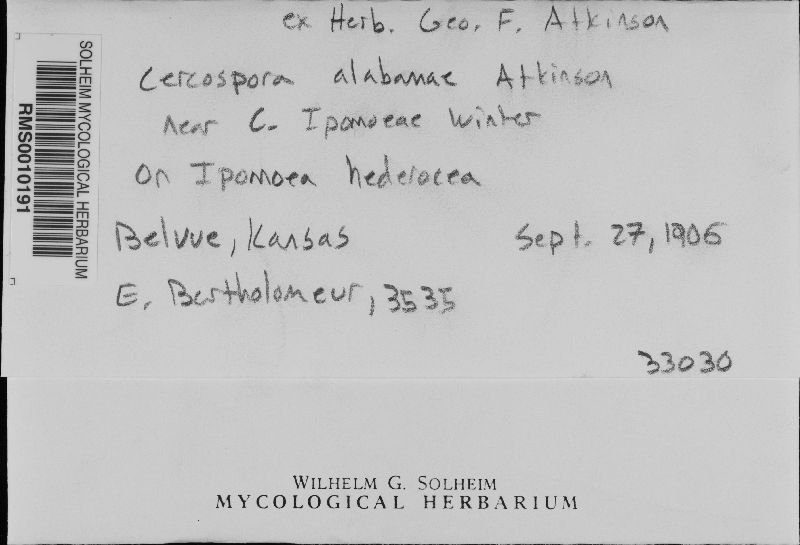 ex Herb. Geo. F. Atkinson
Cercospora alabamae Atkinson
near C. Ipomoeae Winter
on Ipomoea hederacea
Belvue, Kansas Sept. 27, 1906
E. Bartholomew, 3535
33030
SOLHEIM MYCOLOGICAL HERBARIUM
RMS0010191
WILHELM G. SOLHEIM
MYCOLOGICAL HERBARIUM